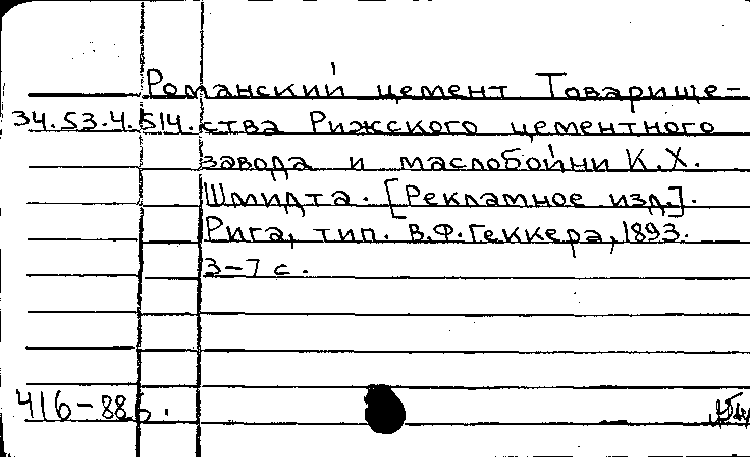 Романский цемент Товарище-
34.53.4.514. ства Рижского цементного
завода и маслобойни К.Х.
Шмидта. [Рекламное изд.].
Рига, тип. В.Ф.Геккера, 1893.
3-7 с.
416-886.